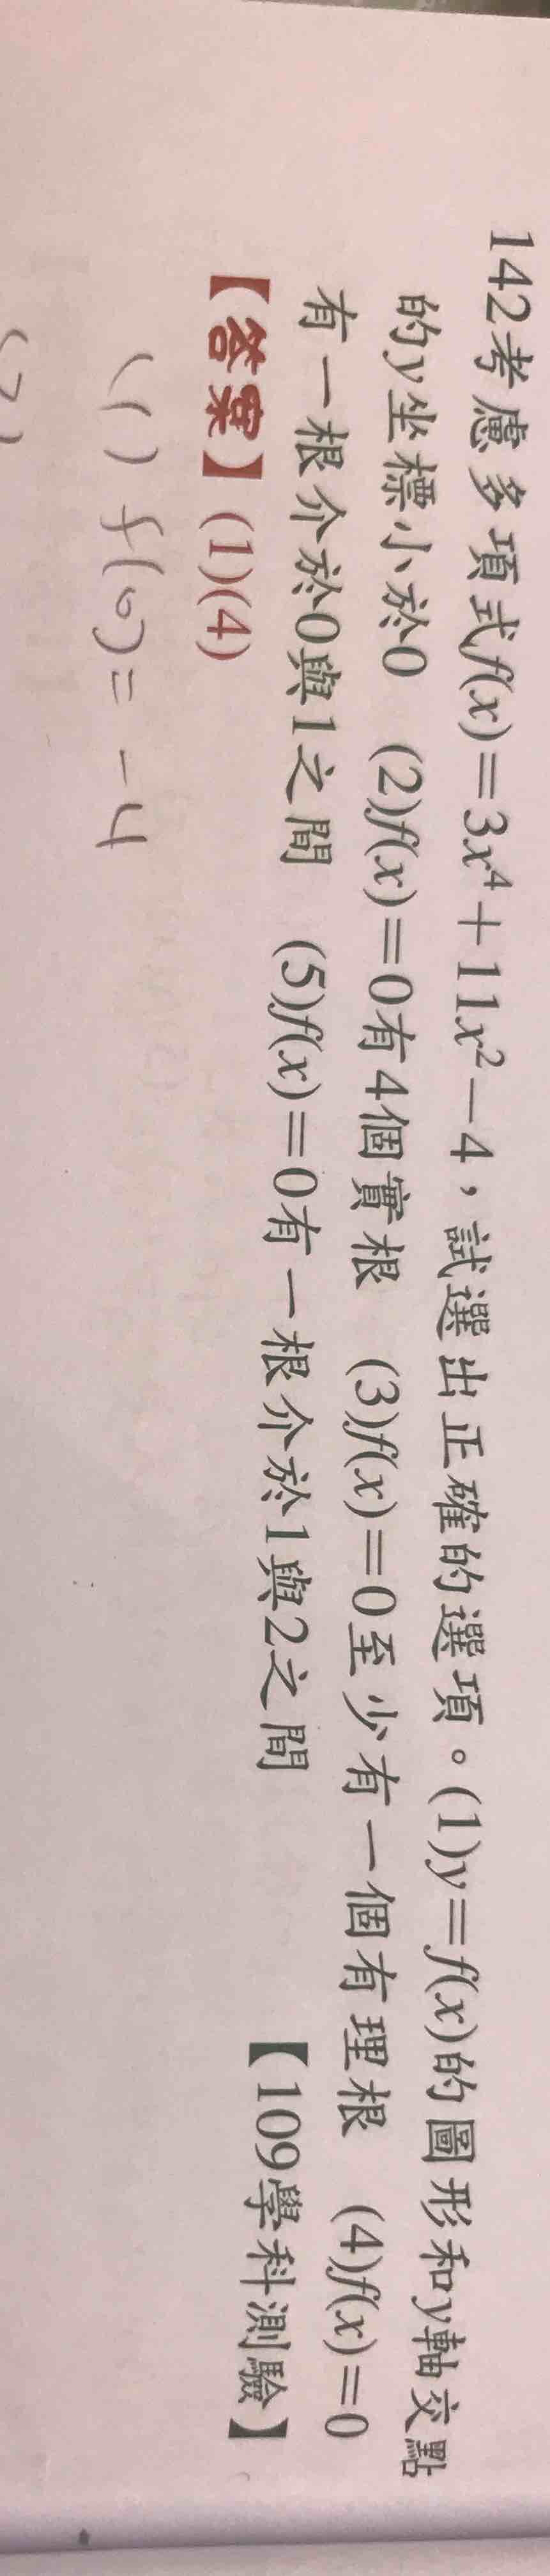 142考慮多項式f(x)=3x⁴+11x²-4，試選出正確的選項。(1)y=f(x)的圖形和y軸交點
的y坐標小於0　(2)f(x)=0有4個實根　(3)f(x)=0至少有一個有理根　(4)f(x)=0
有一根介於0與1之間　(5)f(x)=0有一根介於1與2之間　【109學科測驗】
【答案】(1)(4)
(1) f(0)= -4